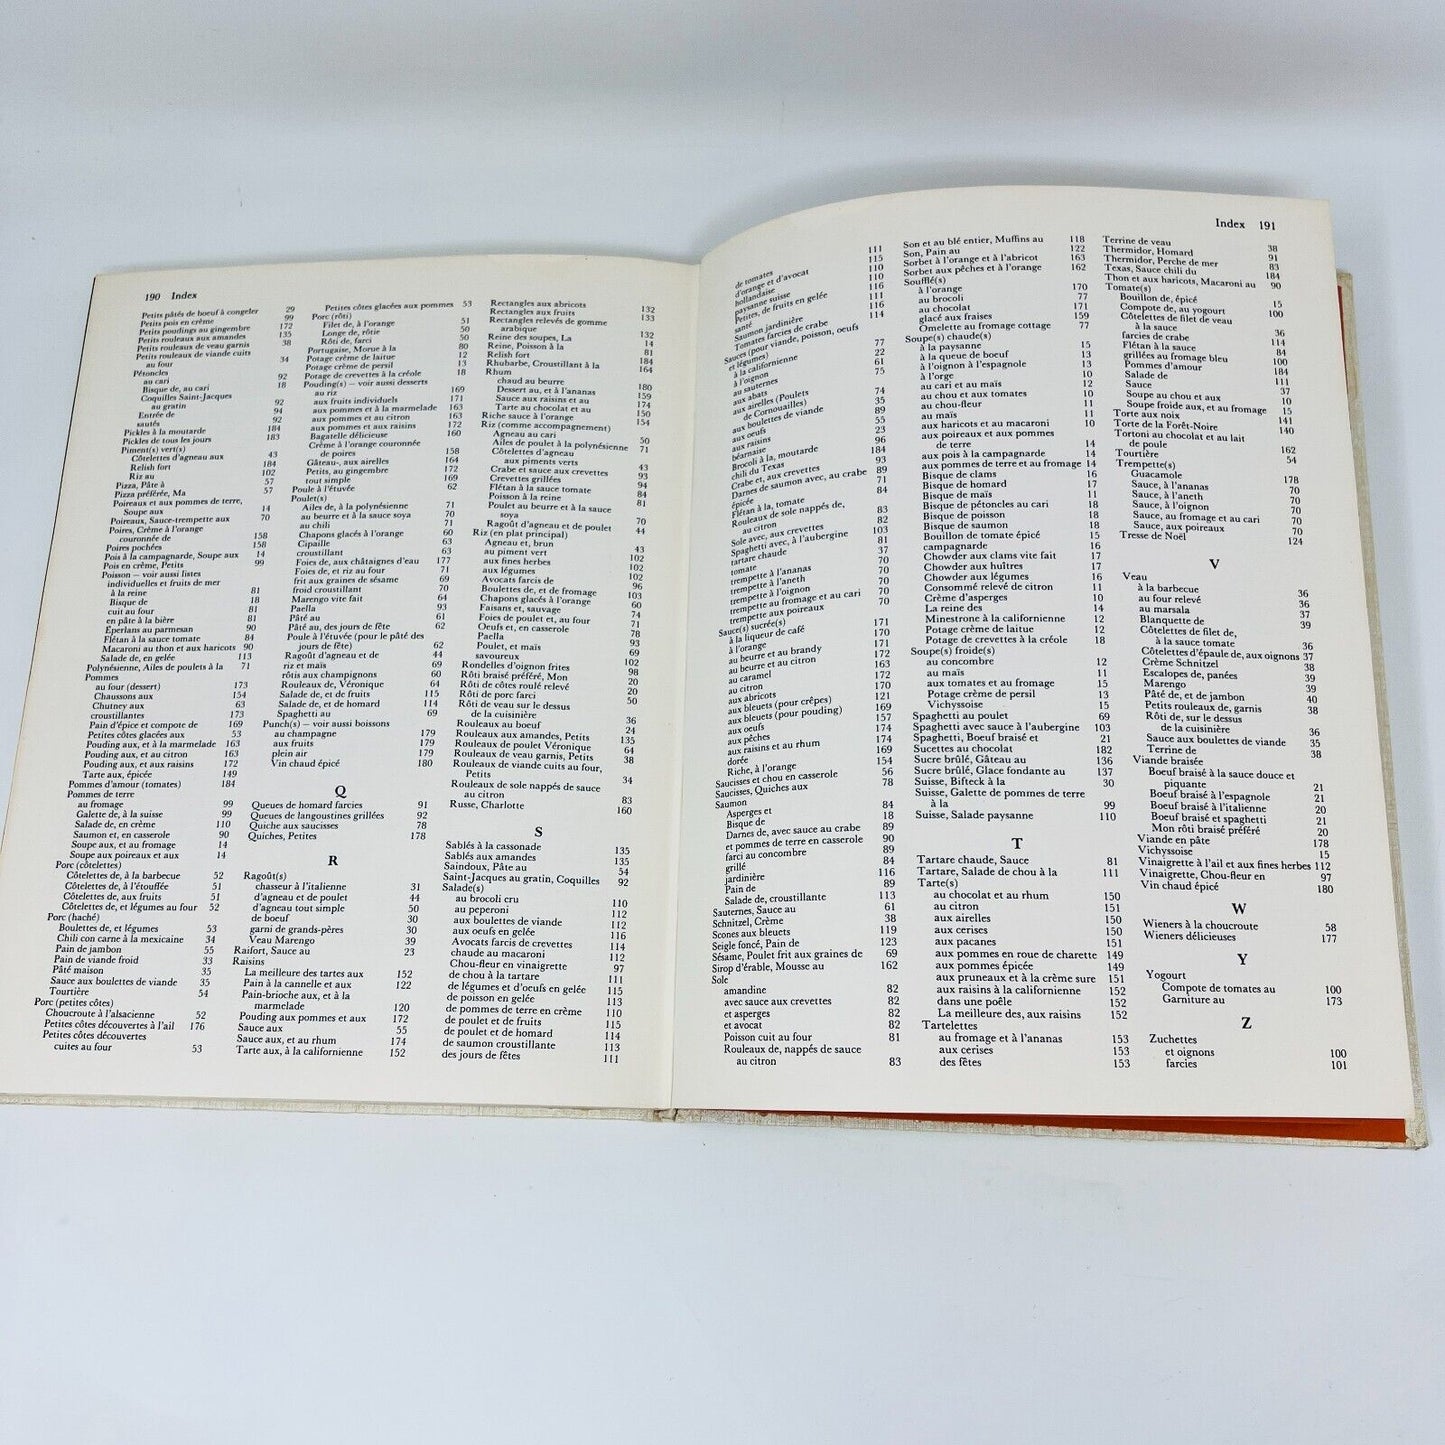 190 Index
Petits pâtés de boeuf à congeler 29
Petits pois en crème 99
Petits poudings au gingembre 172
Petits rouleaux aux amandes 135
Petits rouleaux de veau garnis 38
Petits rouleaux de viande cuits
au four 34
Pétoncles
au cari 92
Bisque de, au cari 18
Coquilles Saint-Jacques
au gratin 92
Entrée de 94
sautés 92
Pickles à la moutarde 184
Pickles de tous les jours 183
Piment(s) vert(s)
Côtelettes d'agneau aux 43
Relish fort 184
Riz au 102
Pizza, Pâte à 57
Pizza préférée, Ma 57
Poireaux et aux pommes de terre,
Soupe aux 14
Poireaux, Sauce-trempette aux 70
Poires, Crème à l'orange
couronnée de 158
Poires pochées 158
Pois à la campagnarde, Soupe aux 14
Pois en crème, Petits 99
Poisson – voir aussi listes
individuelles et fruits de mer
à la reine 81
Bisque de 18
cuit au four 81
en pâte à la bière 81
Éperlans au parmesan 90
Flétan à la sauce tomate 84
Macaroni au thon et aux haricots 90
Salade de, en gelée 113
Polynésienne, Ailes de poulets à la 71
Pommes
au four (dessert) 173
Chaussons aux 154
Chutney aux 63
croustillantes 173
Pain d'épice et compote de 169
Petites côtes glacées aux 53
Pouding aux, et à la marmelade 163
Pouding aux, et au citron 163
Pouding aux, et aux raisins 172
Tarte aux, épicée 149
Pommes d'amour (tomates) 184
Pommes de terre
au fromage 99
Galette de, à la suisse 99
Salade de, en crème 110
Saumon et, en casserole 90
Soupe aux, et au fromage 14
Soupe aux poireaux et aux 14
Porc (côtelettes)
Côtelettes de, à la barbecue 52
Côtelettes de, à l'étouffée 51
Côtelettes de, aux fruits 51
Côtelettes de, et légumes au four 52
Porc (haché)
Boulettes de, et légumes 53
Chili con carne à la mexicaine 34
Pain de jambon 55
Pain de viande froid 33
Pâté maison 35
Sauce aux boulettes de viande 35
Tourtière 54
Porc (petites côtes)
Choucroute à l'alsacienne 52
Petites côtes découvertes à l'ail 176
Petites côtes découvertes
cuites au four 53
Petites côtes glacées aux pommes 53
Porc (rôti)
Filet de, à l'orange 51
Longe de, rôtie 50
Rôti de, farci 50
Portugaise, Morue à la 80
Potage crème de laitue 12
Potage crème de persil 13
Potage de crevettes à la créole 18
Pouding(s) – voir aussi desserts
au riz 169
aux fruits individuels 171
aux pommes et à la marmelade 163
aux pommes et au citron 163
aux pommes et aux raisins 172
Bagatelle délicieuse 160
Crème à l'orange couronnée
de poires 158
Gâteau-, aux airelles 164
Petits, au gingembre 172
tout simple 169
Poule à l'étuvée 62
Poulet(s)
Ailes de, à la polynésienne 71
au beurre et à la sauce soya 70
au chili 71
Chapons glacés à l'orange 60
Cipaille 63
croustillant 63
Foies de, aux châtaignes d'eau 177
Foies de, et riz au four 71
frit aux graines de sésame 69
froid croustillant 70
Marengo vite fait 64
Paella 93
Pâté au 61
Pâté au, des jours de fête 62
Poule à l'étuvée (pour le pâté des
jours de fête) 62
Ragoût d'agneau et de 44
riz et maïs 69
rôtis aux champignons 60
Rouleaux de, Véronique 64
Salade de, et de fruits 115
Salade de, et de homard 114
Spaghetti au 69
Punch(s) – voir aussi boissons
au champagne 179
aux fruits 179
plein air 179
Vin chaud épicé 180
Q
Queues de homard farcies 91
Queues de langoustines grillées 92
Quiche aux saucisses 78
Quiches, Petites 178
R
Ragoût(s)
chasseur à l'italienne 31
d'agneau et de poulet 44
d'agneau tout simple 50
de boeuf 30
garni de grands-pères 30
Veau Marengo 39
Raifort, Sauce au 23
Raisins
La meilleure des tartes aux 152
Pain à la cannelle et aux 122
Pain-brioche aux, et à la
marmelade 120
Pouding aux pommes et aux 172
Sauce aux 55
Sauce aux, et au rhum 174
Tarte aux, à la californienne 152
Rectangles aux abricots 132
Rectangles aux fruits 133
Rectangles relevés de gomme
arabique 132
Reine des soupes, La 14
Reine, Poisson à la 81
Relish fort 184
Rhubarbe, Croustillant à la 164
Rhum
chaud au beurre 180
Dessert au, et à l'ananas 159
Sauce aux raisins et au 174
Tarte au chocolat et au 150
Riche sauce à l'orange 154
Riz (comme accompagnement)
Agneau au cari 50
Ailes de poulet à la polynésienne 71
Côtelettes d'agneau
aux piments verts 43
Crabe et sauce aux crevettes 93
Crevettes grillées 94
Flétan à la sauce tomate 84
Poisson à la reine 81
Poulet au beurre et à la sauce
soya 70
Ragoût d'agneau et de poulet 44
Riz (en plat principal)
Agneau et, brun 43
au piment vert 102
aux fines herbes 102
aux légumes 102
Avocats farcis de 96
Boulettes de, et de fromage 103
Chapons glacés à l'orange 60
Faisans et, sauvage 74
Foies de poulet et, au four 71
Oeufs et, en casserole 78
Paella 93
Poulet, et maïs 69
savoureux 102
Rondelles d'oignon frites 98
Rôti braisé préféré, Mon 20
Rôti de côtes roulé relevé 20
Rôti de porc farci 50
Rôti de veau sur le dessus
de la cuisinière 36
Rouleaux au boeuf 24
Rouleaux aux amandes, Petits 135
Rouleaux de poulet Véronique 64
Rouleaux de veau garnis, Petits 38
Rouleaux de viande cuits au four,
Petits 34
Rouleaux de sole nappés de sauce
au citron 83
Russe, Charlotte 160
S
Sablés à la cassonade 135
Sablés aux amandes 135
Saindoux, Pâte au 54
Saint-Jacques au gratin, Coquilles 92
Salade(s)
au brocoli cru 110
au peperoni 112
aux boulettes de viande 112
aux oeufs en gelée 116
Avocats farcis de crevettes 114
chaude au macaroni 112
Chou-fleur en vinaigrette 97
de chou à la tartare 111
de légumes et d'oeufs en gelée 115
de poisson en gelée 113
de pommes de terre en crème 110
de poulet et de fruits 115
de poulet et de homard 114
de saumon croustillante 113
des jours de fêtes 111
Index 191
de tomates 111
d'orange et d'avocat 115
hollandaise 110
paysanne suisse 110
Petites, de fruits en gelée 116
santé 111
Saumon jardinière 116
Tomates farcies de crabe 114
Sauces (pour viande, poisson, oeufs
et légumes)
à la californienne 77
à l'oignon 22
au sauternes 61
aux abats 75
aux airelles (Poulets
de Cornouailles) 74
aux boulettes de viande 35
aux oeufs 89
aux raisins 55
béarnaise 23
Brocoli à la, moutarde 96
chili du Texas 184
Crabe et, aux crevettes 93
Darnes de saumon avec, au crabe 89
épicée 71
Flétan à la, tomate 84
Rouleaux de sole nappés de,
au citron 83
Sole avec, aux crevettes 82
Spaghetti avec, à l'aubergine 103
tartare chaude 81
tomate 37
trempette à l'ananas 70
trempette à l'aneth 70
trempette à l'oignon 70
trempette au fromage et au cari 70
trempette aux poireaux 70
Sauce(s) sucrée(s)
à la liqueur de café 171
à l'orange 170
au beurre et au brandy 171
au beurre et au citron 172
au caramel 163
au citron 172
aux abricots 170
aux bleuets (pour crêpes) 171
aux bleuets (pour pouding) 169
aux oeufs 157
aux pêches 174
aux raisins et au rhum 174
dorée 169
Riche, à l'orange 154
Saucisses et chou en casserole 56
Saucisses, Quiches aux 78
Saumon
Asperges et 84
Bisque de 18
Darnes de, avec sauce au crabe 89
et pommes de terre en casserole 90
farci au concombre 89
grillé 84
jardinière 116
Pain de 89
Salade de, croustillante 113
Sauternes, Sauce au 61
Schnitzel, Crème 38
Scones aux bleuets 119
Seigle foncé, Pain de 123
Sésame, Poulet frit aux graines de 69
Sirop d'érable, Mousse au 162
Sole
amandine 82
avec sauce aux crevettes 82
et asperges 82
et avocat 82
Poisson cuit au four 81
Rouleaux de, nappés de sauce
au citron 83
Son et au blé entier, Muffins au 118
Son, Pain au 122
Sorbet à l'orange et à l'abricot 163
Sorbet aux pêches et à l'orange 162
Soufflé(s)
à l'orange 170
au brocoli 77
au chocolat 171
glacé aux fraises 159
Omelette au fromage cottage 77
Soupe(s) chaude(s)
à la paysanne 15
à la queue de boeuf 13
à l'oignon à l'espagnole 13
à l'orge 10
au cari et au maïs 12
au chou et aux tomates 10
au chou-fleur 11
au maïs 11
aux haricots et au macaroni 10
aux poireaux et aux pommes
de terre 14
aux pois à la campagnarde 14
aux pommes de terre et au fromage 14
Bisque de clams 16
Bisque de homard 17
Bisque de maïs 11
Bisque de pétoncles au cari 18
Bisque de poisson 18
Bisque de saumon 18
Bouillon de tomate épicé 15
campagnarde 16
Chowder aux clams vite fait 17
Chowder aux huîtres 17
Chowder aux légumes 16
Consommé relevé de citron 11
Crème d'asperges 10
La reine des 14
Minestrone à la californienne 12
Potage crème de laitue 12
Potage de crevettes à la créole 18
Soupe(s) froide(s)
au concombre 12
au maïs 11
aux tomates et au fromage 15
Potage crème de persil 13
Vichyssoise 15
Spaghetti au poulet 69
Spaghetti avec sauce à l'aubergine 103
Spaghetti, Boeuf braisé et 21
Sucettes au chocolat 182
Sucre brûlé, Gâteau au 136
Sucre brûlé, Glace fondante au 137
Suisse, Bifteck à la 30
Suisse, Galette de pommes de terre
à la 99
Suisse, Salade paysanne 110
T
Tartare chaude, Sauce 81
Tartare, Salade de chou à la 111
Tarte(s)
au chocolat et au rhum 150
au citron 151
aux airelles 150
aux cerises 150
aux pacanes 151
aux pommes en roue de charette 149
aux pommes épicée 149
aux pruneaux et à la crème sure 151
aux raisins à la californienne 152
dans une poêle 152
La meilleure des, aux raisins 152
Tartelettes
au fromage et à l'ananas 153
aux cerises 153
des fêtes 153
Terrine de veau 38
Thermidor, Homard 91
Thermidor, Perche de mer 83
Texas, Sauce chili du 184
Thon et aux haricots, Macaroni au 90
Tomate(s)
Bouillon de, épicé 15
Compote de, au yogourt 100
Côtelettes de filet de veau
à la sauce 36
farcies de crabe 114
Flétan à la sauce 84
grillées au fromage bleu 100
Pommes d'amour 184
Salade de 111
Sauce 37
Soupe au chou et aux 10
Soupe froide aux, et au fromage 15
Torte aux noix 141
Torte de la Forêt-Noire 140
Tortoni au chocolat et au lait
de poule 162
Tourtière 54
Trempette(s)
Guacamole 178
Sauce, à l'ananas 70
Sauce, à l'aneth 70
Sauce, à l'oignon 70
Sauce, au fromage et au cari 70
Sauce, aux poireaux 70
Tresse de Noël 124
V
Veau
à la barbecue 36
au four relevé 36
au marsala 37
Blanquette de 39
Côtelettes de filet de,
à la sauce tomate 36
Côtelettes d'épaule de, aux oignons 37
Crème Schnitzel 38
Escalopes de, panées 39
Marengo 39
Pâté de, et de jambon 40
Petits rouleaux de, garnis 38
Rôti de, sur le dessus
de la cuisinière 36
Sauce aux boulettes de viande 35
Terrine de 38
Viande braisée
Boeuf braisé à la sauce douce et
piquante 21
Boeuf braisé à l'espagnole 21
Boeuf braisé à l'italienne 20
Boeuf braisé et spaghetti 21
Mon rôti braisé préféré 20
Viande en pâte 178
Vichyssoise 15
Vinaigrette à l'ail et aux fines herbes 112
Vinaigrette, Chou-fleur en 97
Vin chaud épicé 180
W
Wieners à la choucroute 58
Wieners délicieuses 177
Y
Yogourt
Compote de tomates au 100
Garniture au 173
Z
Zuchettes
et oignons 100
farcies 101